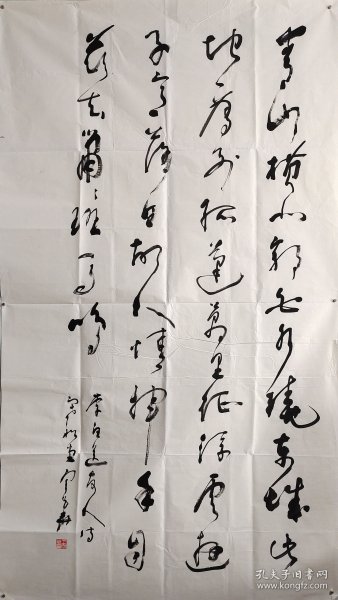 青山横北郭白水绕东城此
地一为别孤蓬万里征浮云游
子意落日故人情挥手自
兹去萧萧班马鸣
李白送友人诗
孔夫子旧书网